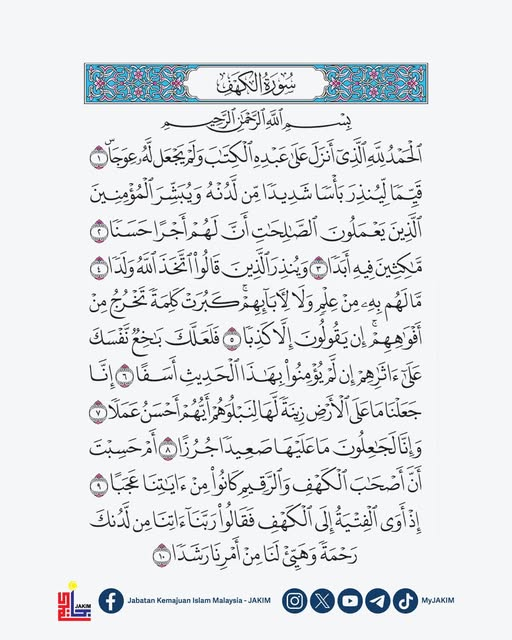 سُورَةُ الكَهْفِ
بِسْمِ ٱللَّهِ ٱلرَّحْمَٰنِ ٱلرَّحِيمِ
ٱلْحَمْدُ لِلَّهِ ٱلَّذِىٓ أَنزَلَ عَلَىٰ عَبْدِهِ ٱلْكِتَٰبَ وَلَمْ يَجْعَل لَّهُۥ عِوَجَاۜ ١
قَيِّمًا لِّيُنذِرَ بَأْسًا شَدِيدًا مِّن لَّدُنْهُ وَيُبَشِّرَ ٱلْمُؤْمِنِينَ
ٱلَّذِينَ يَعْمَلُونَ ٱلصَّٰلِحَٰتِ أَنَّ لَهُمْ أَجْرًا حَسَنًا ٢
مَّٰكِثِينَ فِيهِ أَبَدًا ٣ وَيُنذِرَ ٱلَّذِينَ قَالُوا۟ ٱتَّخَذَ ٱللَّهُ وَلَدًا ٤
مَّا لَهُم بِهِۦ مِنْ عِلْمٍ وَلَا لِـَٔابَآئِهِمْ ۚ كَبُرَتْ كَلِمَةً تَخْرُجُ مِنْ
أَفْوَٰهِهِمْ ۚ إِن يَقُولُونَ إِلَّا كَذِبًا ٥ فَلَعَلَّكَ بَٰخِعٌ نَّفْسَكَ
عَلَىٰٓ ءَاثَٰرِهِمْ إِن لَّمْ يُؤْمِنُوا۟ بِهَٰذَا ٱلْحَدِيثِ أَسَفًا ٦ إِنَّا
جَعَلْنَا مَا عَلَى ٱلْأَرْضِ زِينَةً لَّهَا لِنَبْلُوَهُمْ أَيُّهُمْ أَحْسَنُ عَمَلًا ٧
وَإِنَّا لَجَٰعِلُونَ مَا عَلَيْهَا صَعِيدًا جُرُزًا ٨ أَمْ حَسِبْتَ
أَنَّ أَصْحَٰبَ ٱلْكَهْفِ وَٱلرَّقِيمِ كَانُوا۟ مِنْ ءَايَٰتِنَا عَجَبًا ٩
إِذْ أَوَى ٱلْفِتْيَةُ إِلَى ٱلْكَهْفِ فَقَالُوا۟ رَبَّنَآ ءَاتِنَا مِن لَّدُنكَ
رَحْمَةً وَهَيِّئْ لَنَا مِنْ أَمْرِنَا رَشَدًا ١٠
JAKIM Jabatan Kemajuan Islam Malaysia - JAKIM MyJAKIM